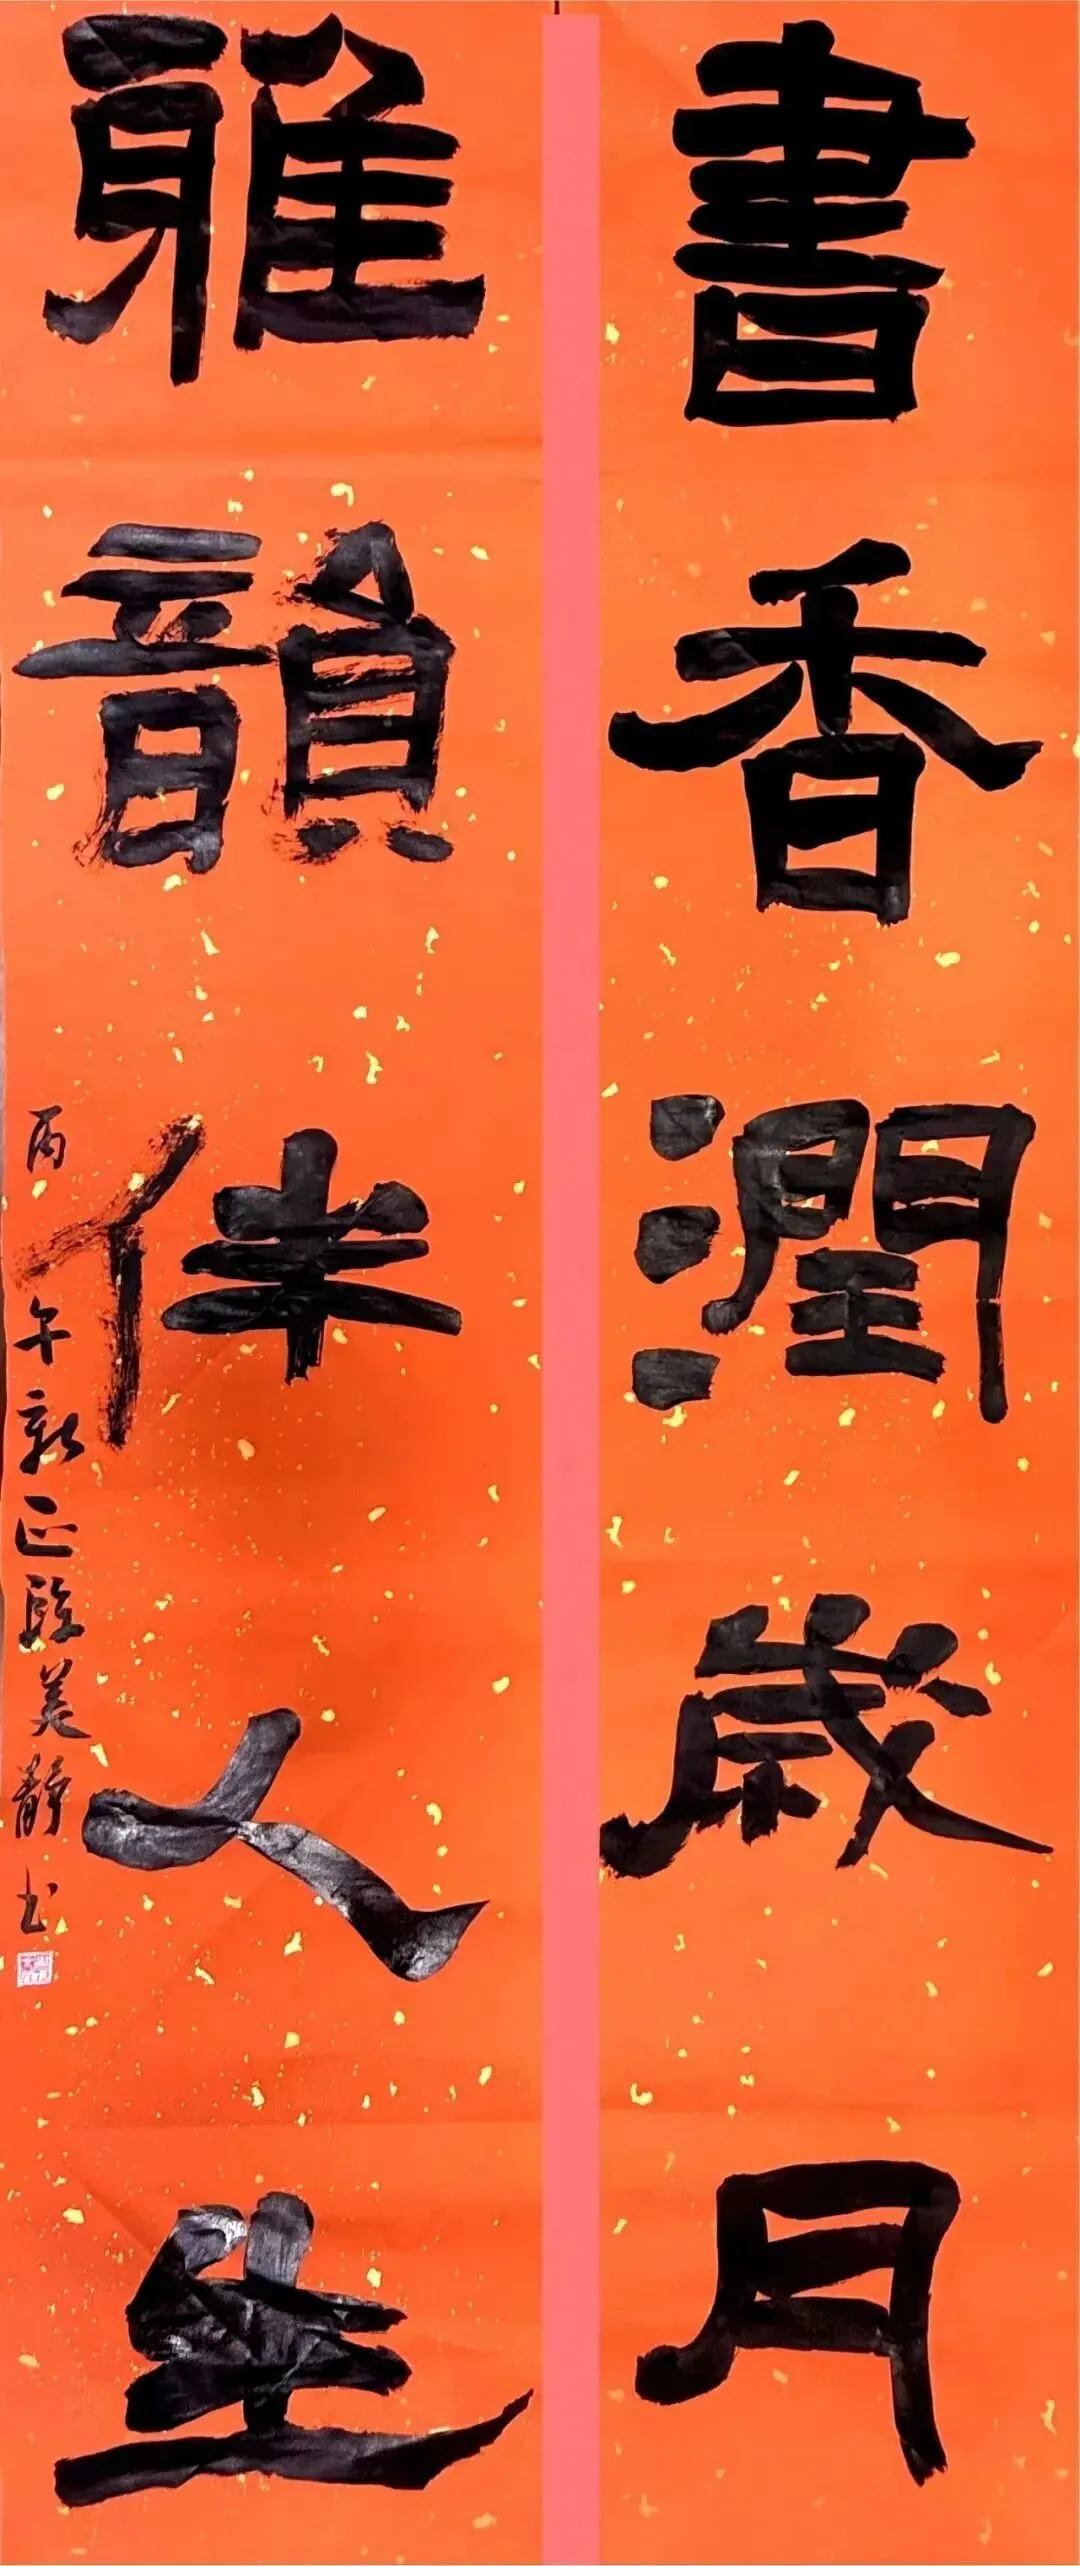 書香潤歲月
雅韻伴人生
丙午新正 美靜书